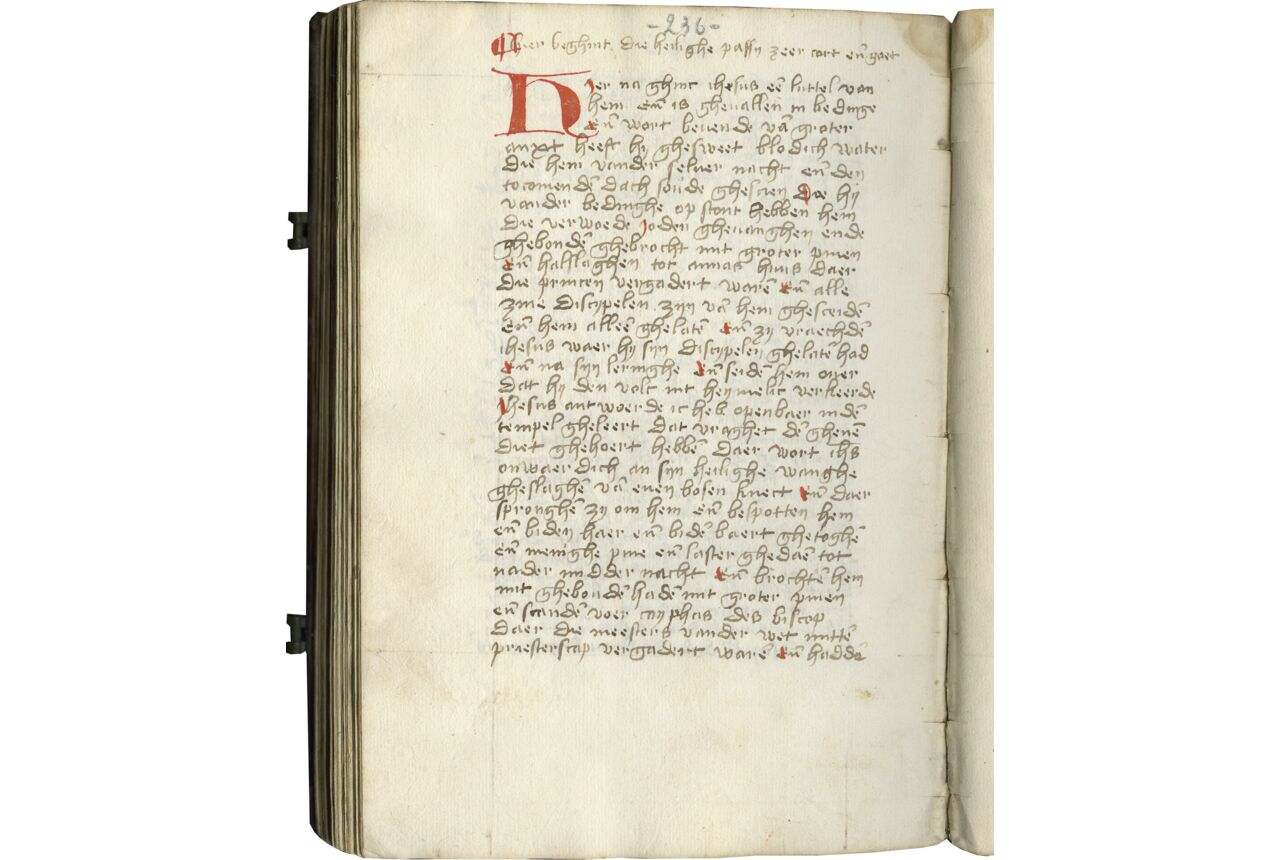 -236-
¶ hier beghint die heilighe passy zeer cort eñ goet
Hier na ghinc ihesus eē luttel van
hem eñ is gheuallen in bedinge
eñ wort beuende vā groter
anxt heeft hy ghesweet blodich water
die hem vander seluer nacht eñ den
tocomendē dach soude ghescien doe hy
vander bedinghe op stont hebben hem
die verwoede ioden gheuanghen ende
ghebondē ghebrocht mit groter pinen
eñ halslaghen tot annas huus daer
die princen vergadert warē eñ alle
zine discypelen zijn vā hem ghesceidē
eñ hem alleē ghelatē eñ zy vraechdē
ihesus waer hy sijn discypelen ghelatē had
eñ na sijn leringhe eñ seidē hem ouer
dat hy den volc int heymelic verkeerde
Ihesus antwoerde ic heb openbaer in dē
tempel gheleert dat vraghet dē ghenē
diet ghehoert hebbē daer wort ihs
onwaerdich an sijn heilighe wanghe
gheslaghē vā enen bosen knect eñ daer
spronghē zy om hem eñ bespotten hem
eñ biden haer eñ bidē baert ghetoghē
eñ menighe pine eñ laster ghedaē tot
nader midder nacht eñ brochtē hem
mit ghebondē hadē mit groter pinen
eñ scandē voer cayphas des biscop
daer die meesters vander wet mittē
priesterscap vergadert warē eñ haddē